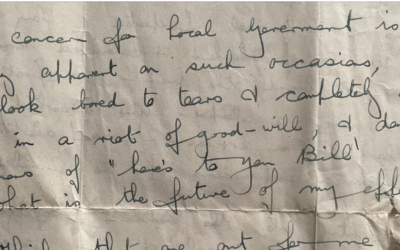 concern for Local Government is
apparent on such occasions,
look bored to tears & completely
in a riot of good-will, & da
of "here's to you Bill"
what is the future of my eff
that are out for me